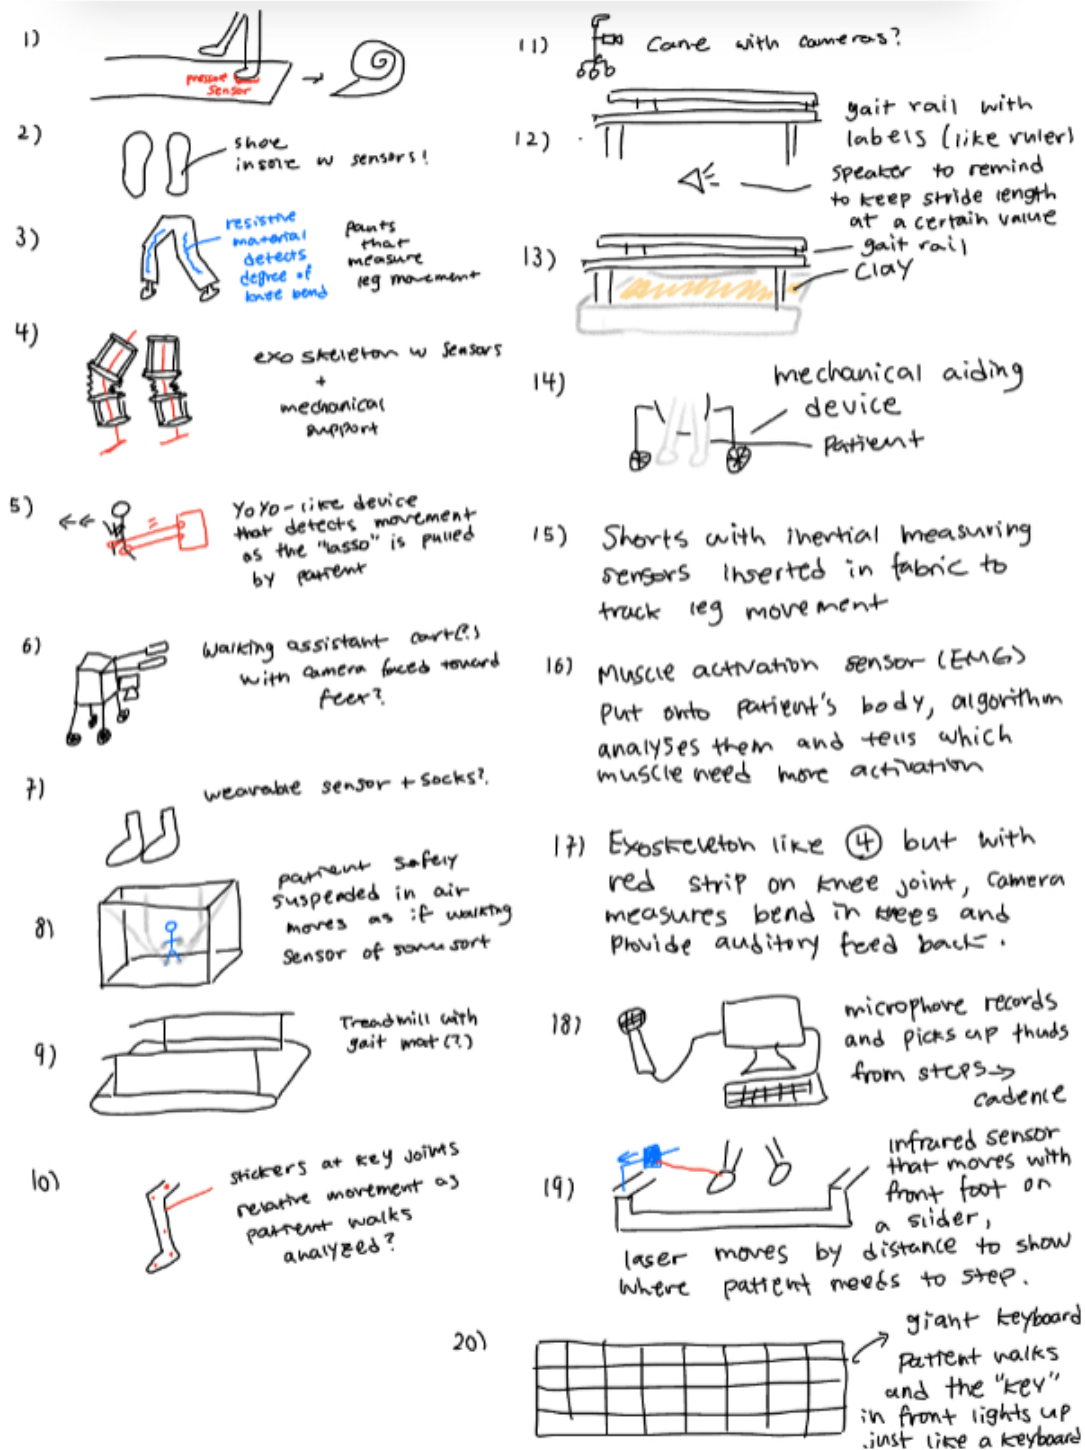 1)
pressure
sensor
2)
shoe
insole w sensors!
3)
resistive
material
detects
degree of
knee bend
pants
that
measure
leg movement
4)
exo skeleton w sensors
+
mechanical
support
5)
YoYo-like device
that detects movement
as the "lasso" is pulled
by patient
6)
Walking assistant cart(?)
with camera faced toward
feet?
7)
wearable sensor + socks?
8)
patient safely
suspended in air
moves as if walking
sensor of some sort
9)
Treadmill with
gait mat (?)
10)
stickers at key joints
relative movement as
patient walks
analyzed?
11)
Cane with cameras?
12)
gait rail with
labels (like ruler)
speaker to remind
to keep stride length
at a certain value
13)
gait rail
clay
14)
mechanical aiding
device
patient
15) Shorts with inertial measuring
sensors inserted in fabric to
track leg movement
16) Muscle activation sensor (EMG)
put onto patient's body, algorithm
analyses them and tells which
muscle need more activation
17) Exoskeleton like 4 but with
red strip on knee joint, camera
measures bend in knees and
provide auditory feed back.
18)
microphone records
and picks up thuds
from steps →
cadence
19)
infrared sensor
that moves with
front foot on
a slider,
laser moves by distance to show
where patient needs to step.
20)
giant keyboard
patient walks
and the "key"
in front lights up
just like a keyboard